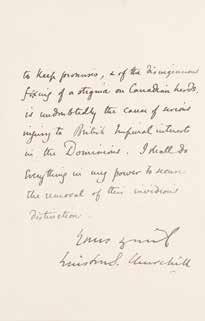 to keep promises, & of the disingenuous
fixing of a stigma on Canadian herds,
is undoubtedly the cause of serious
injury to British Imperial interests
in the Dominions. I shall do
everything in my power to secure
the removal of this invidious
distinction.
Yours
Winston S. Churchill